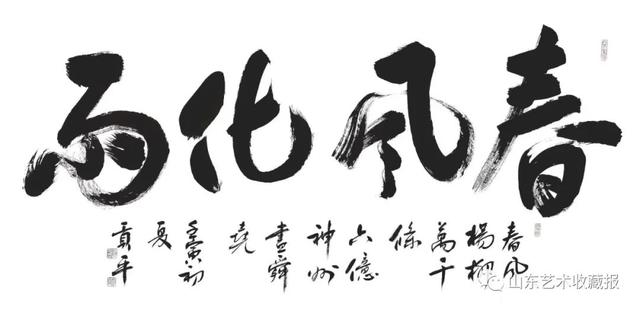 春风化雨
春风
楊柳
萬千
條
六億
神州
盡舜
堯
壬寅初
夏
山东艺术收藏报